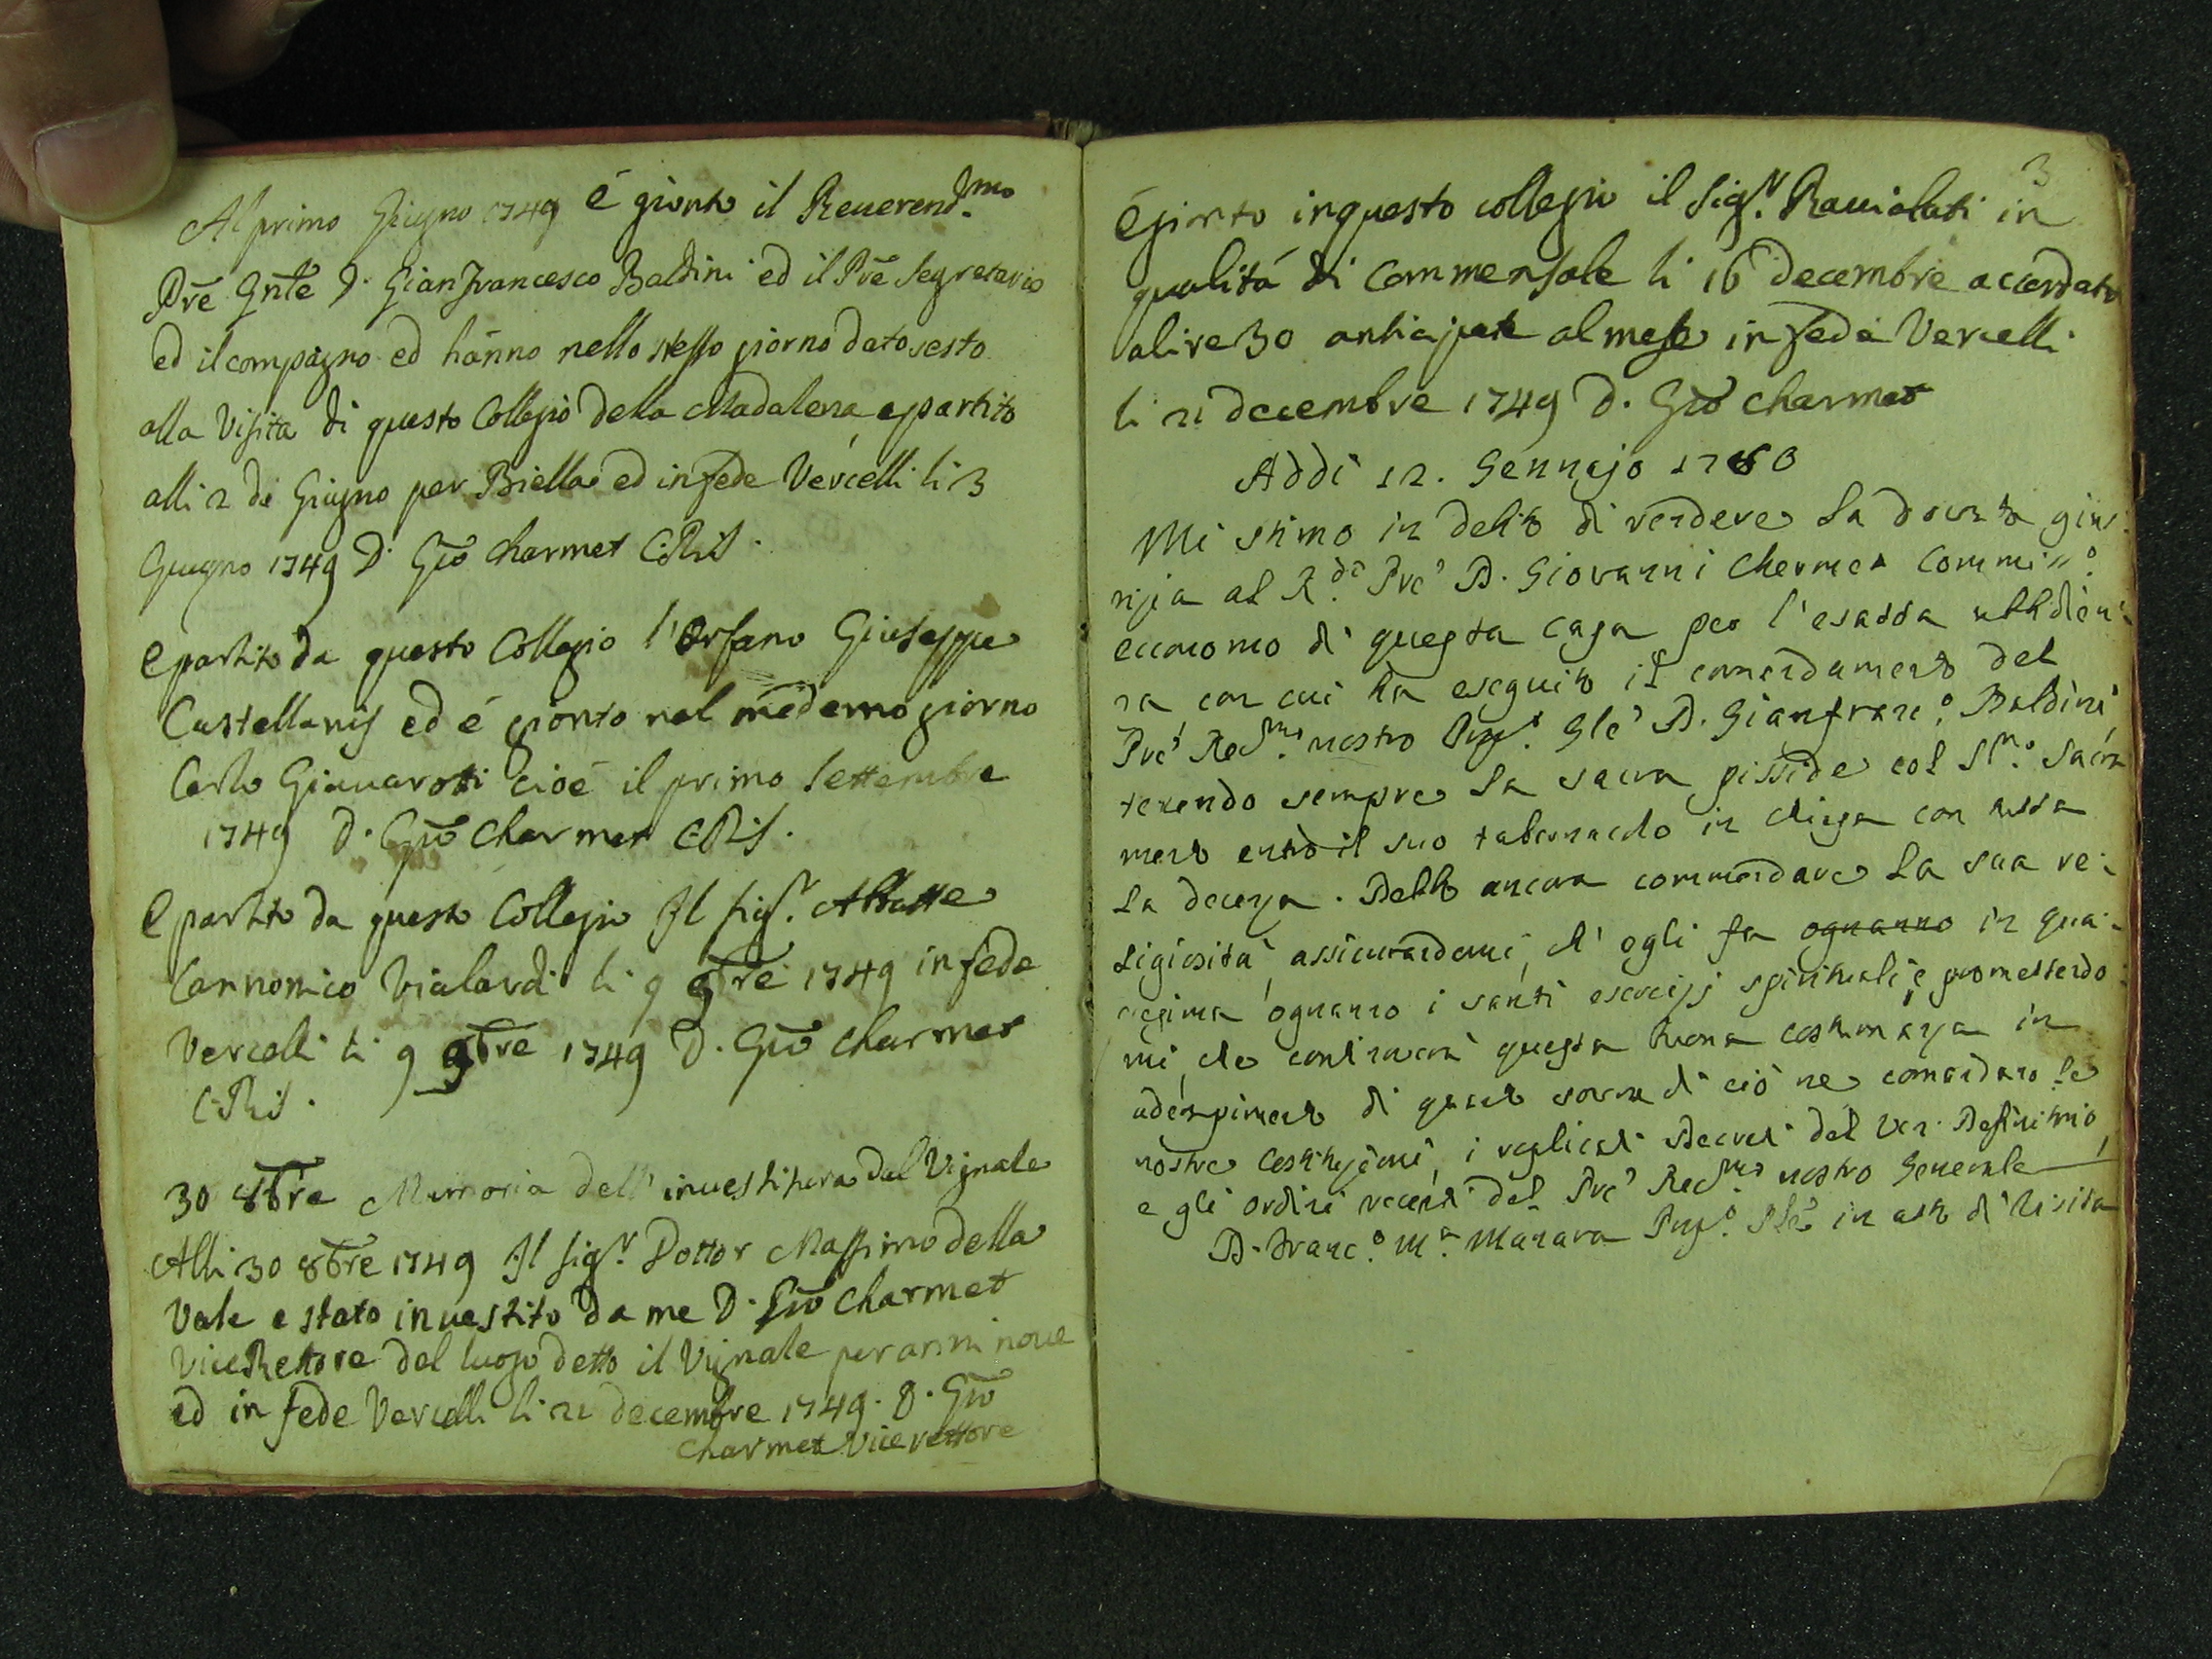 Al primo Giugno 1749 é gionto il Reuerend.mo
Pre Gnle D. Gian Francesco Baldini ed il Pre Segretario
ed il compagno ed hànno nello stesso giorno dato sesto
alla Visita di questo Collegio della Madalena, e partito
alli 2 di Giugno per Biella ed in fede Vercelli li 3
Giugno 1749 D. Gio Charmet C.R.S.
E partito da questo Collegio l'Orfano Giuseppe
Castellanis ed é gionto nel medemo giorno
Carlo cioé il primo Settembre
1749 D. Gio Charmet C.R.S.
E partito da questo Collegio Il Sig.r Abbatte
Cannonico Vialardi li 9 9bre 1749 in fede
Vercelli li 9 9bre 1749 D. Gio Charmet
C.R.S.
30 8bre Memoria dell'inuestitura dal Vignale
Alli 30 8bre 1749 Il Sig.r Dottor Massimo della
Vale e stato inuestito da me D. Gio Charmet
Vice Rettore del luogo detto il Vignale per anni noue
ed in fede Vercelli li 21 decembre 1749. D. Gio
Charmet Vice rettore
3
É gionto in questo collegio il Sig.r in
qualitá di Commensale li 16 decembre accordato
a lire 30 anticipate al mese in fede Vercelli
li 21 decembre 1749 D. Gio Charmet
Addì 12. Gennajo 1750
Mi stimo in debito di rendere la dovuta gius-
tizia al R.do Pre D. Giovanni Chermet Commiss.o
economo di questa casa per l'esatta ubbidien-
za con cui ha eseguito il comandamento del
Pre Red.mo nostro Prep.o Gle D. Gianfranc.o Baldini
tenendo sempre la sacra pisside col SS.mo Sacra
mento entro il suo tabernacolo in chiesa con tutta
la decenza. Debbo ancora commendare la sua re-
ligiosità, assicurandomi, ch'egli fa ognanno in qua-
resima ognanno i santi esercizj spirituali, e promettendo
mi, che continuerà questa buona costumanza in
adempimento di quanto sovra di ciò ne comandano le
nostre Costituzioni, i replicati Decreti del Ven. Definitorio,
e gli ordini recenti del Pre Red.mo nostro Generale
D. Franc.o M.a Manara Prep.o Ple in atto di Visita